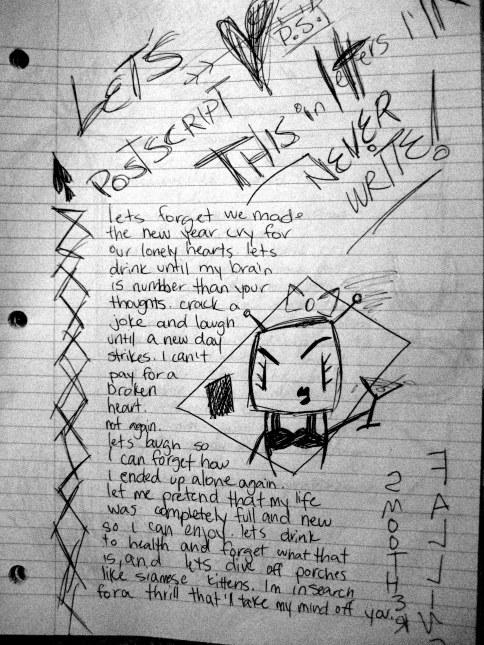 LETS
POSTSCRIPT P.S.
THIS in letters I'll
NEVER
WRITE!
lets forget we made
the new year cry for
our lonely hearts lets
drink until my brain
is number than your
thoughts. crack a
joke and laugh
until a new day
strikes. I can't
pay for a
broken
heart.
not again.
lets laugh so
I can forget how
I ended up alone again.
let me pretend that my life
was completely full and new
so I can enjoy. lets drink
to health and forget what that
is, and lets dive off porches
like siamese kittens. Im in search
for a thrill that'll take my mind off you.